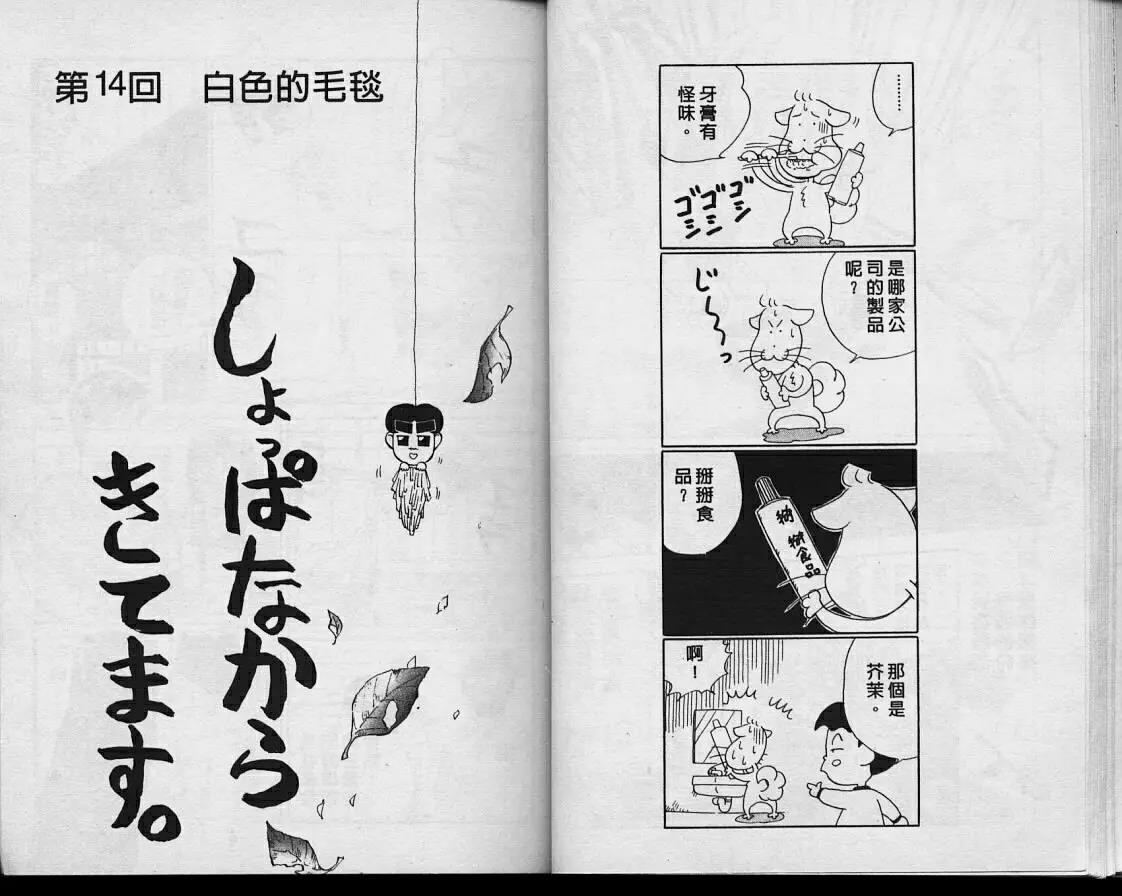 ………
牙膏有
怪味。
ゴシ
ゴシ
ゴシ
是哪家公
司的製品
呢？
じ〜〜っ
掰掰食
品？
食品
那個是
芥茉。
啊！
第14回　白色的毛毯
しょっぱなから
きてます。